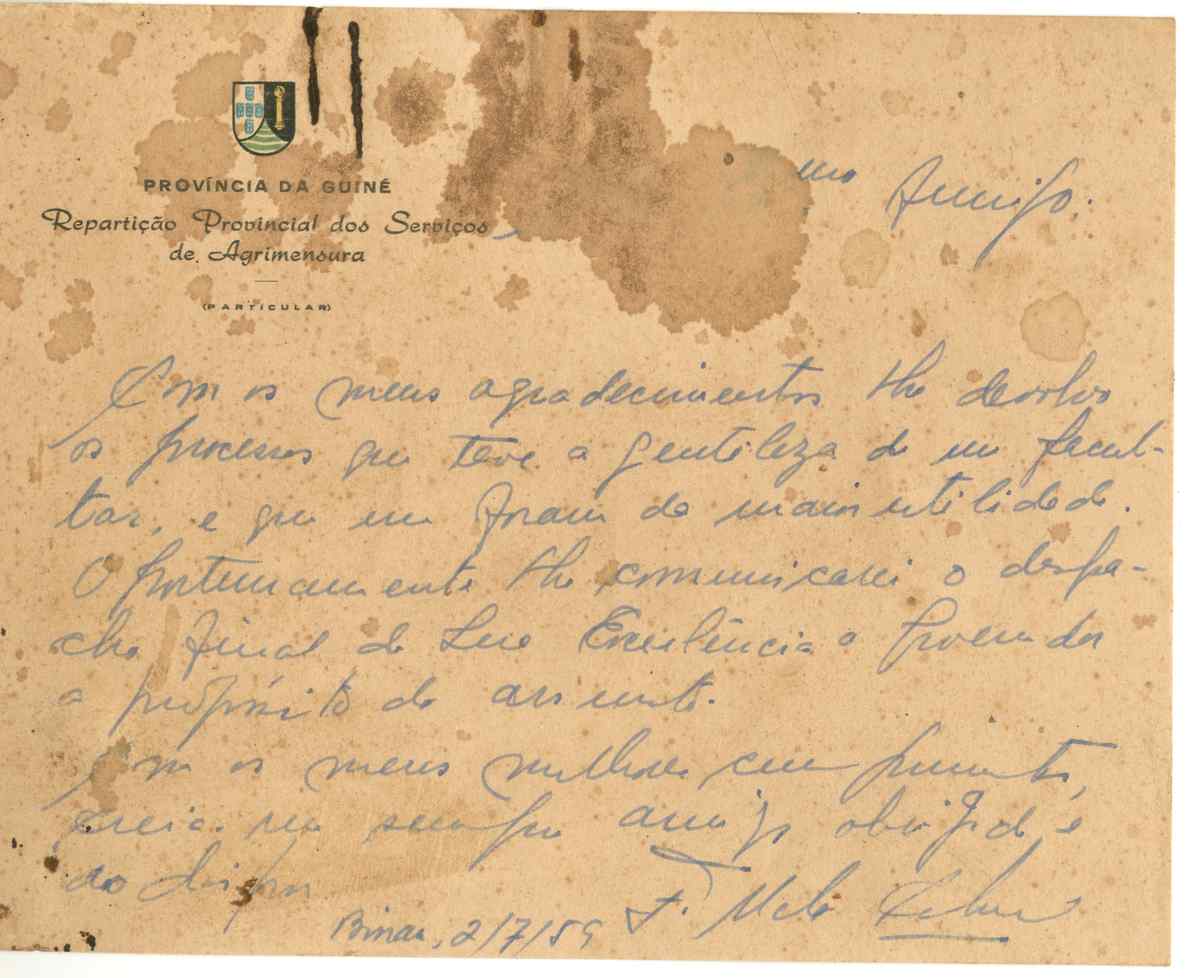 PROVÍNCIA DA GUINÉ
Repartição Provincial dos Serviços
de Agrimensura
(PARTICULAR)
mo Amigo.
Com os meus agradecimentos lhe devolvo
os processos que teve a gentileza de me facul-
tar, e que me foram da maior utilidade.
Oportunamente lhe comunicarei o despa-
cho final de Sua Excelência o
a propósito do assunto.
Com os meus melhores cumprimentos,
creia-me sempre amigo obrigado e
ao dispor
Bissau, 2/7/59 F. Melo